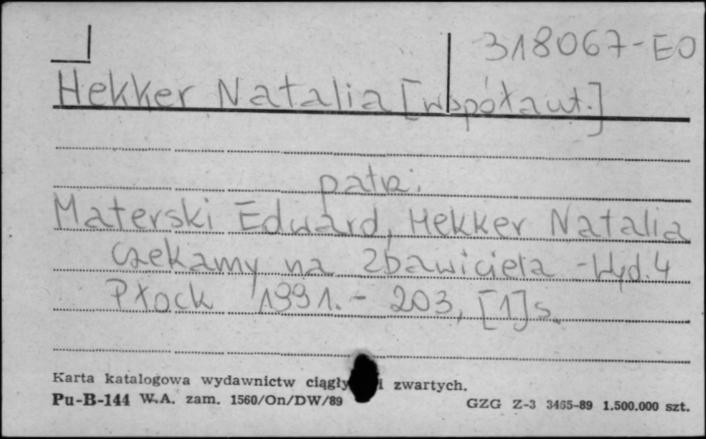 318067-EO
Hekker Natalia [współaut.]
patrz:
Materski Edward, Hekker Natalia
Czekamy na Zbawiciela - Wyd. 4
Płock 1991. - 203, [1] s.
Karta katalogowa wydawnictw ciągły i zwartych.
Pu-B-144 W.A. zam. 1560/On/DW/89 GZG Z-3 3465-89 1.500.000 szt.